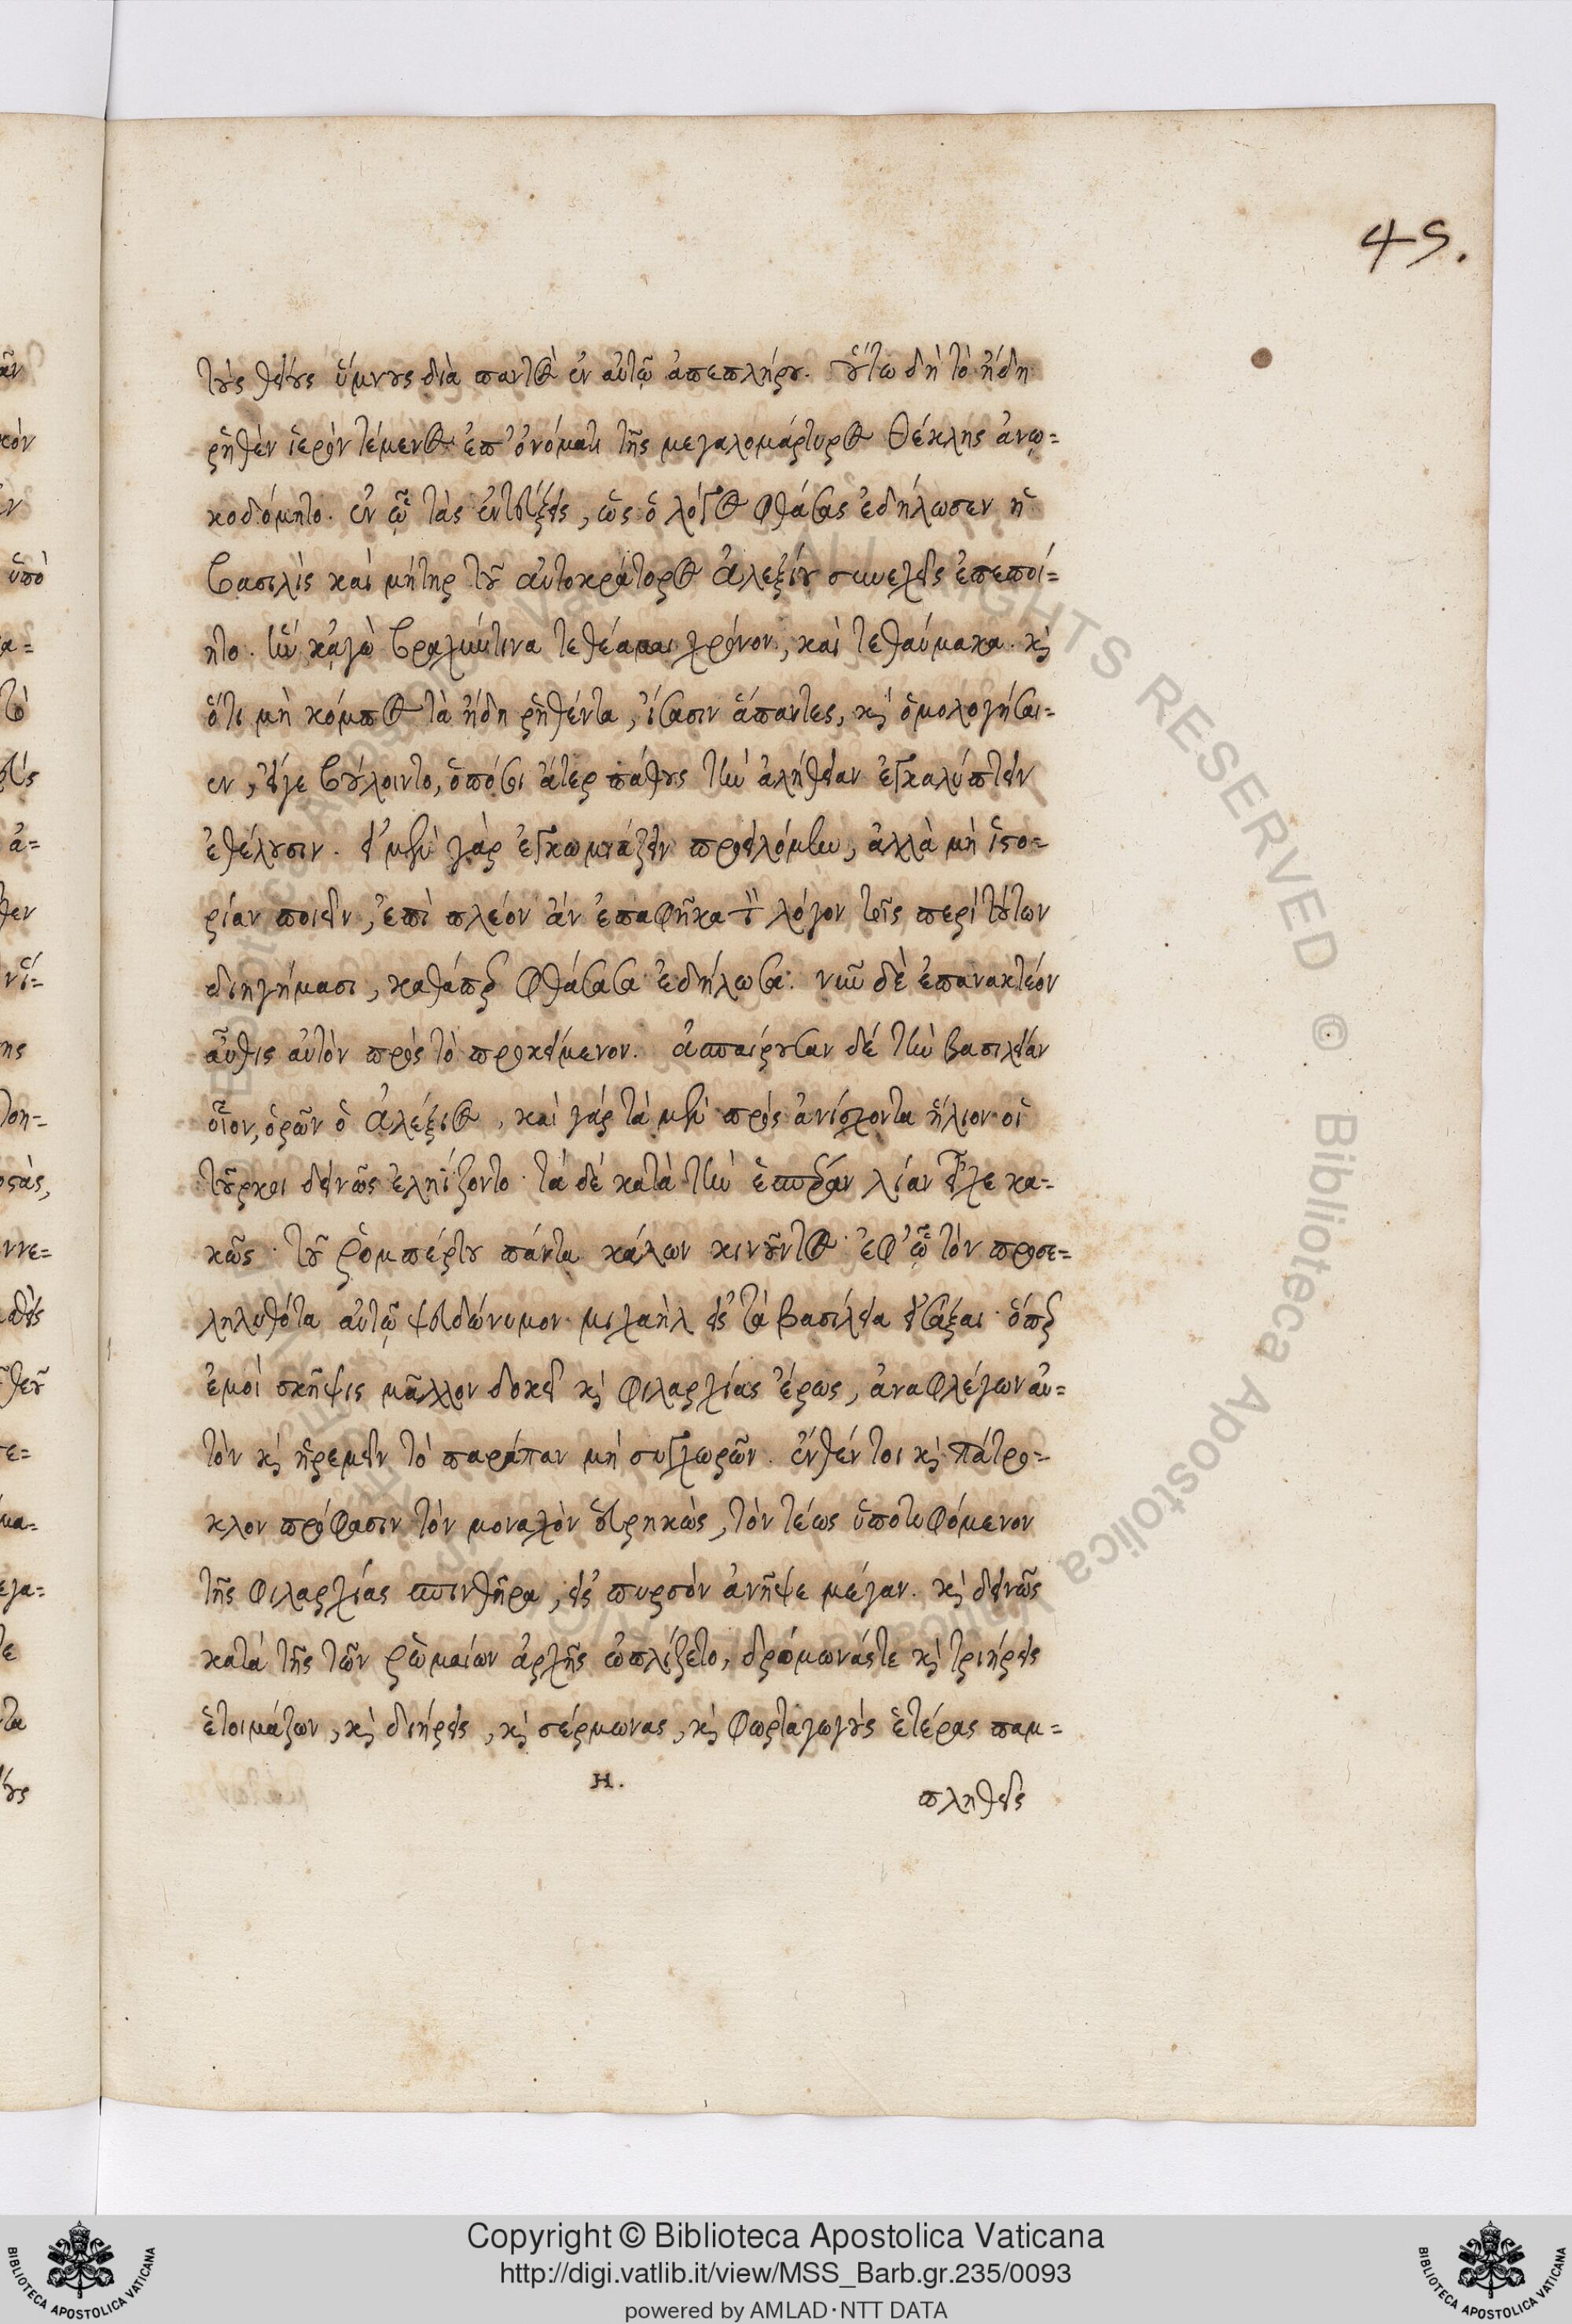 45.
τοὺς θείους ὕμνους διὰ παντὸς ἐν αὐτῷ ἀπεπλήρου. οὕτω δὴ τὸ ἤδη
ῥηθὲν ἱερὸν τέμενος ἐπ' ὀνόματι τῆς μεγαλομάρτυρος Θέκλης ἀνῳ=
κοδόμητο. ἐν ᾧ τὰς ἐντεύξεις, ὡς ὁ λόγος φθάσας ἐδήλωσεν ἡ
βασιλὶς καὶ μήτηρ τοῦ αὐτοκράτορος Ἀλεξίου συνεχεῖς ἐπεποί=
ητο. ἣν κἀγὼ βραχύν τινα τεθέαμαι χρόνον, καὶ τεθαύμακα. καὶ
ὅτι μὴ κόμπος τὰ ἤδη ῥηθέντα, ἴσασιν ἅπαντες, καὶ ὁμολογήσαι=
εν, εἴγε βούλοιντο, ὁπόσοι ἄτερ πάθους τὴν ἀλήθειαν ἐγκαλύπτειν
ἐθέλουσιν. εἰ μὲν γὰρ ἐγκωμιάζειν προειλόμην, ἀλλὰ μὴ ἱστο=
ρίαν ποιεῖν, ἐπὶ πλέον ἂν ἐπαφῆκα τὸν λόγον τοῖς περὶ τούτων
διηγήμασι, καθάπερ φθάσασα ἐδήλωσα. νῦν δὲ ἐπανακτέον
αὖθις αὐτὸν πρὸς τὸ προκείμενον. ἀσπαίρουσαν δὲ τὴν βασιλείαν
οἷον, ὁρῶν ὁ Ἀλέξιος, καὶ γὰρ τὰ μὲν πρὸς ἀνίσχοντα ἥλιον οἱ
τοῦρκοι δεινῶς ἐληΐζοντο. τὰ δὲ κατὰ τὴν ἑσπέραν λίαν εἶχε κα=
κῶς. τοῦ ῥομπέρτου πάντα κάλων κινοῦντος ἐφ' ᾧ τὸν προσε=
ληλυθότα αὐτῷ ψευδώνυμον μιχαὴλ εἰς τὰ βασίλεια εἰσάξαι. ὅπερ
ἐμοὶ σκῆψις μᾶλλον δοκεῖ καὶ φιλαρχίας ἔρως, ἀναφλέγων αὐ=
τὸν καὶ ἠρεμεῖν τὸ παράπαν μὴ συγχωρῶν. ἐνθέν τοι καὶ πάτρο=
κλον πρόφασιν τὸν μοναχὸν εὑρηκὼς, τὸν τέως ὑποτυφόμενον
τῆς φιλαρχίας σπινθῆρα, εἰς πυρσὸν ἀνῆψε μέγαν. καὶ δεινῶς
κατὰ τῆς τῶν ῥωμαίων ἀρχῆς ὡπλίζετο, δρόμωνάς τε καὶ τριήρεις
ἑτοιμάζων, καὶ διήρεις, καὶ σέρμωνας, καὶ φορταγωγοὺς ἑτέρας παμ=
Η.
πληθεῖς
Copyright © Biblioteca Apostolica Vaticana
http://digi.vatlib.it/view/MSS_Barb.gr.235/0093
powered by AMLAD·NTT DATA